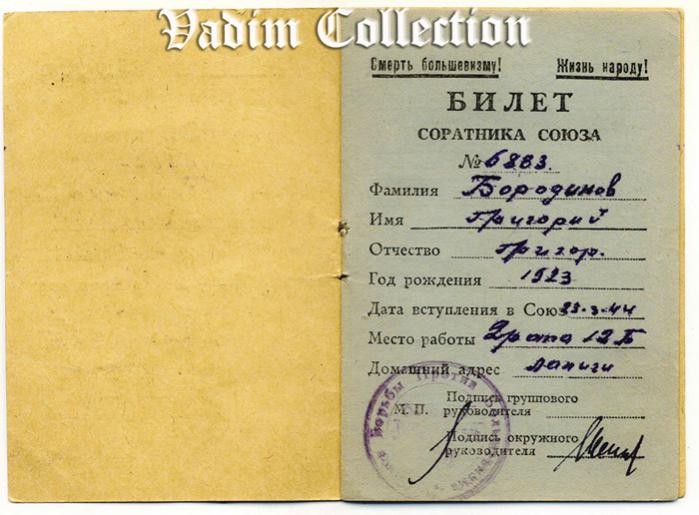 Vadim Collection
Смерть большевизму! Жизнь народу!
БИЛЕТ
СОРАТНИКА СОЮЗА
№ 6883.
Фамилия Бородинов
Имя Григорий
Отчество Григор.
Год рождения 1923
Дата вступления в Союз 23-3-44
Место работы рота 12Б
Домашний адрес
М. П. Подпись группового
руководителя
Подпись окружного
руководителя
Борьбы Против